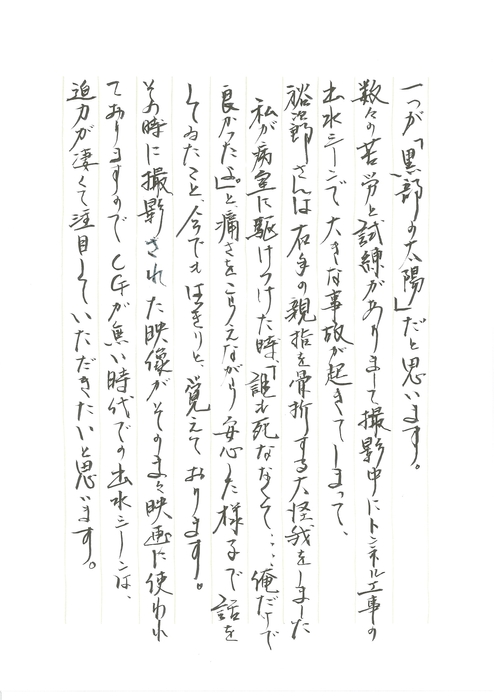 一つが「黒部の太陽」だと思います。
数々の苦労と試練がありまして撮影中にトンネル工事の
出水シーンで大きな事故が起きてしまって、
裕次郎さんは右手の親指を骨折する大怪我をしました
私が病室に駆けつけた時、「誰も死ななくて…、俺だけで
良かったよ」。と痛さをこらえながら安心した様子で話を
してゐたこと、今でもはっきりと、覚えております。
その時に撮影された映像がそのまま映画に使われ
ておりますので CGが無い時代での出水シーンは、
迫力が凄くて注目していただきたいと思います。